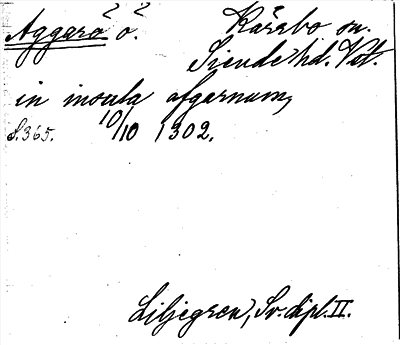 Aggarö ö. Kärrbo sn.
Siende hd. Vstm.
in insula afgarnum,
S. 365. 10/10 1302.
Liljegren, Sv. dipl. II.